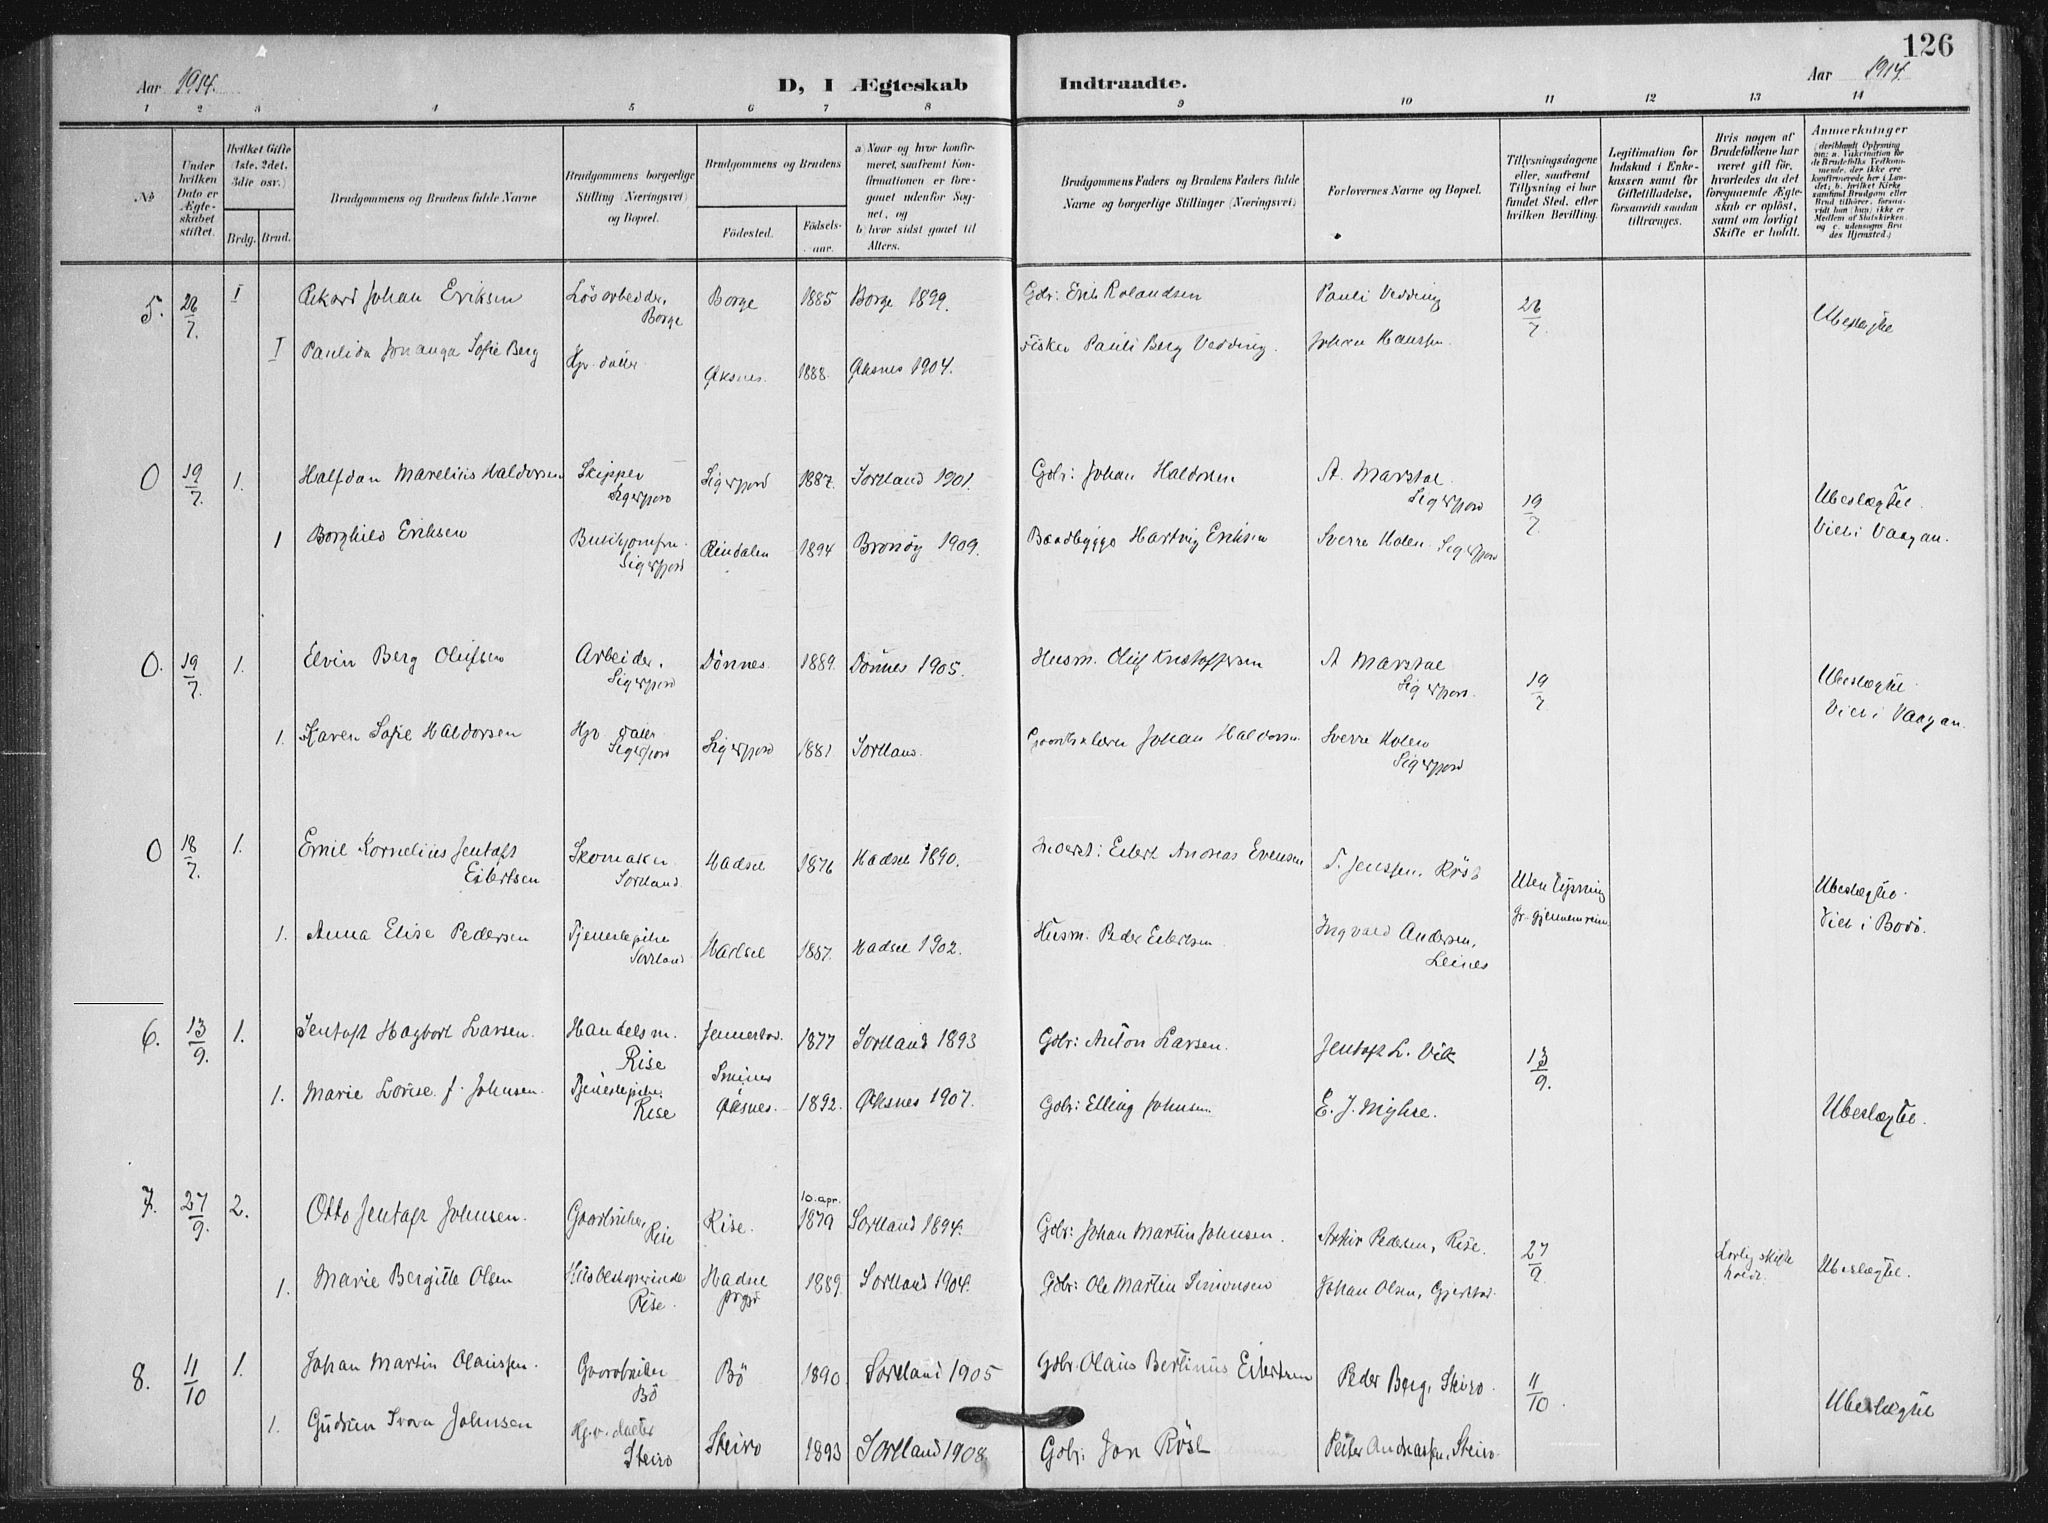 126
Aar 1914.
D, I Ægteskab Indtraadte.
Aar 1914.
1 2 3 4 5 6 7 8 9 10 11 12 13 14
No
Under hvilken Dato er Ægteskabet stiftet.
Hvilket Gifte (1ste, 2det, 3die osv.)
Brdg. Brud.
Brudgommens og Brudens fulde Navne
Brudgommens borgerlige Stilling (Næringsvei) og Bopæl.
Brudgommens og Brudens
Fødested. Fødselsaar.
a) Naar og hvor konfirmeret, saafremt Konfirmationen er foregaaet udenfor Sognet, og
b) hvor sidst gaaet til Alters.
Brudgommens Faders og Brudens Faders fulde Navne og borgerlige Stillinger (Næringsvei)
Forlovernes Navne og Bopæl.
Tillysningsdagene eller, saafremt Tillysning ei har fundet Sted, efter hvilken Bevilling.
Legitimation for Indskud i Enkekassen samt for Giftetilladelse, forsaavidt saadan tiltrænges.
Hvis nogen af Brudefolkene har været gift før, hvorledes da det foregaaende Ægteskab er opløst, samt om lovligt Skifte er holdt.
Anmerkninger (deriblandt Oplysning om: a. Vakcination for de Brudefolks Vedkommende, der ikke ere konfirmerede her i Landet; b. hvilket Kirkesamfund Brudgom eller Brud tilhører, forsaavidt han (hun) ikke er Medlem af Statskirken og c. udensogns Brudes Hjemsted.)
5. 26/7 I Rikard Johan Eriksen Løsarbeider, Borge Borge 1885 Borge 1899. Gbr: Erik Rolandsen Pauli Vedding 26/7 Ubeslegtet
I Paulida Jonanga Sofie Berg Hjv. datter Øksnes. 1888. Øksnes 1904. Fisker Pauli Berg Vedding. Johan Hanssen.
0 19/7 1. Halfdan Marelius Haldorsen Skipper Sigerfjord Sigerfjord 1887. Sortland 1901. Gbr: Johan Haldorsen A. Marstal. Sigerfjord 19/7 Ubeslægtet.
1 Borghild Eriksen Butikjomfru Sigerfjord Rindalen 1894 Brønøy 1909. Baadbygge Hartvig Eriksen Sverre Holen Sigerfjord Viet i Vaagan.
0. 19/7. 1. Elvin Berg Olufsen Arbeider, Sigerfjord Dønnes. 1889. Dønnes 1905. Husm. Oluf Kristoffersen A Marstal Sigerfjord. 19/7 Ubeslægtet.
1. Karen Sofie Haldorsen Hjv datter Sigerfjord Sigerfjord 1881 Sortland. Johan Haldorsen Sverre Holen Sigerfjord Viet i Vaagan.
0 18/7. 1. Emil Kornelius Jentoft Eilertsen Skomaker Sortland. Hadsel 1876 Hadsel 1890. Inderst: Eilert Andreas Evensen T. Jenssen. Røst Uten lysning Ubeslægtet.
1. Anna Elise Pedersen Tjenestepike Sortland Hadsel 1887. Hadsel 1902. Husm. Peder Eilertsen. Ingvald Andersen, Leines Viet i Bodø.
6. 13/9. 1. Jentoft Hagbart Larsen. Handelsm. Rise 1877 Sortland 1893 Gbr: Anton Larsen. Jentoft L. Vik 13/9.
1. Marie Lovise f. Johnsen. Tjenestepike. Rise Smines Øksnes. 1892. Øksnes 1907. Gbr: Elling Johnsen. E. J. Myhre. Ubeslægtet.
7. 27/9. 2. Otto Jentoft Johnsen. Gaardbruker, Rise Rise. 10. apr. 1879 Sortland 1894. Gbr: Johan Martin Johnsen. Pedersen, Rise. 27/9. Lovlig skifte holdt Ubeslægtet.
1. Marie Bergitte Olsen Husbestyrerinde Rise. Hadsel 1889. Sortland 1904. Gbr: Ole Martin Simonsen Johan Olsen,
8. 11/10 1. Johan Martin Olaussen. Gaardbruker Bø Bø 1890 Sortland 1905 Gbr. Olaus Bertinus Eilertsen Peder Berg, Steiro. 11/10. Ubeslægtet
1. Gudrun Svova Johnsen Hj. v. datter Steiro Steiro 1893 Sortland 1908. Gbr: Jon Røst Peder Andreassen, Steiro.